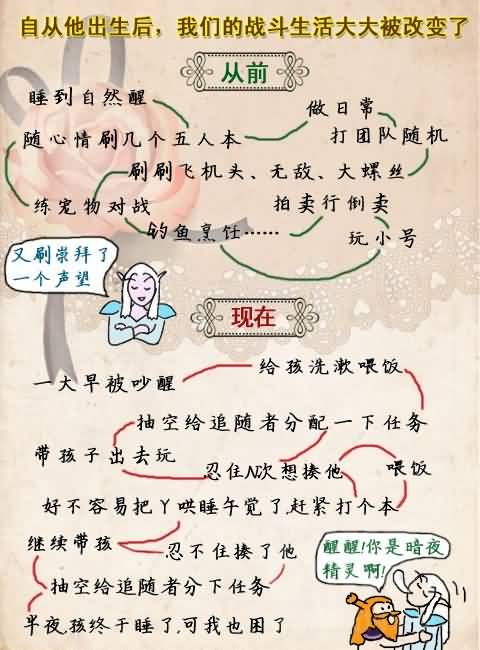 自从他出生后，我们的战斗生活大大被改变了
从前
睡到自然醒
做日常
随心情刷几个五人本
打团队随机
刷刷飞机头、无敌、大螺丝
练宠物对战
拍卖行倒卖
钓鱼烹饪……
玩小号
又刷崇拜了
一个声望
现在
给孩洗漱喂饭
一大早被吵醒
抽空给追随者分配一下任务
带孩子出去玩
忍住N次想揍他
喂饭
好不容易把丫哄睡午觉了,赶紧打个本
继续带孩
忍不住揍了他
醒醒!你是暗夜
精灵啊!
抽空给追随者分下任务
半夜,孩终于睡了,可我也困了